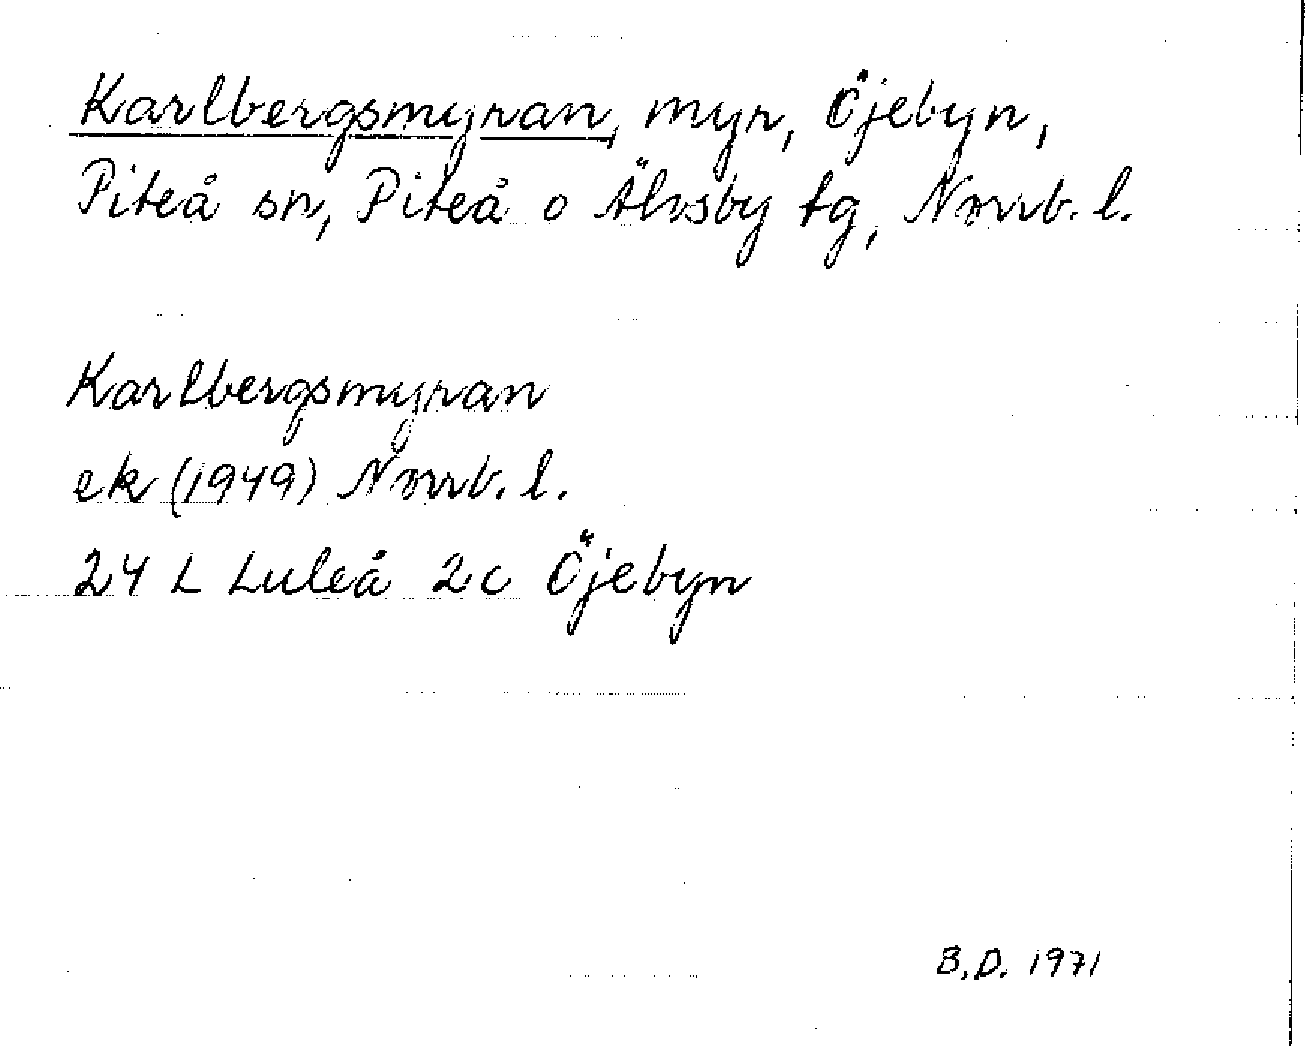 Karlbergsmyran, myr, Öjebyn,
Piteå sn, Piteå o Älvsby tg, Norrb. l.
Karlbergsmyran
ek (1949) Norrb. l.
24 L Luleå 2c Öjebyn
B.D. 1971